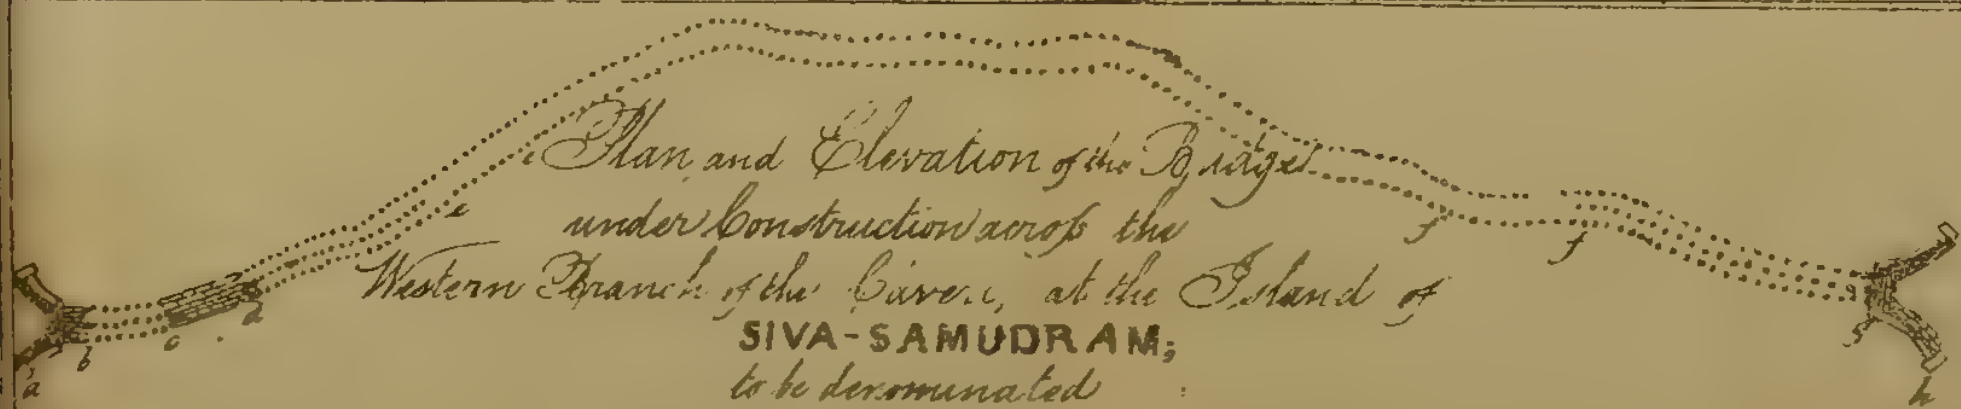 Plan and Elevation of the Bridge
under Construction across the
Western Branch of the Caveri, at the Island of
SIVA-SAMUDRAM;
to be denominated
a
b
c
d
e
e
f
f
h